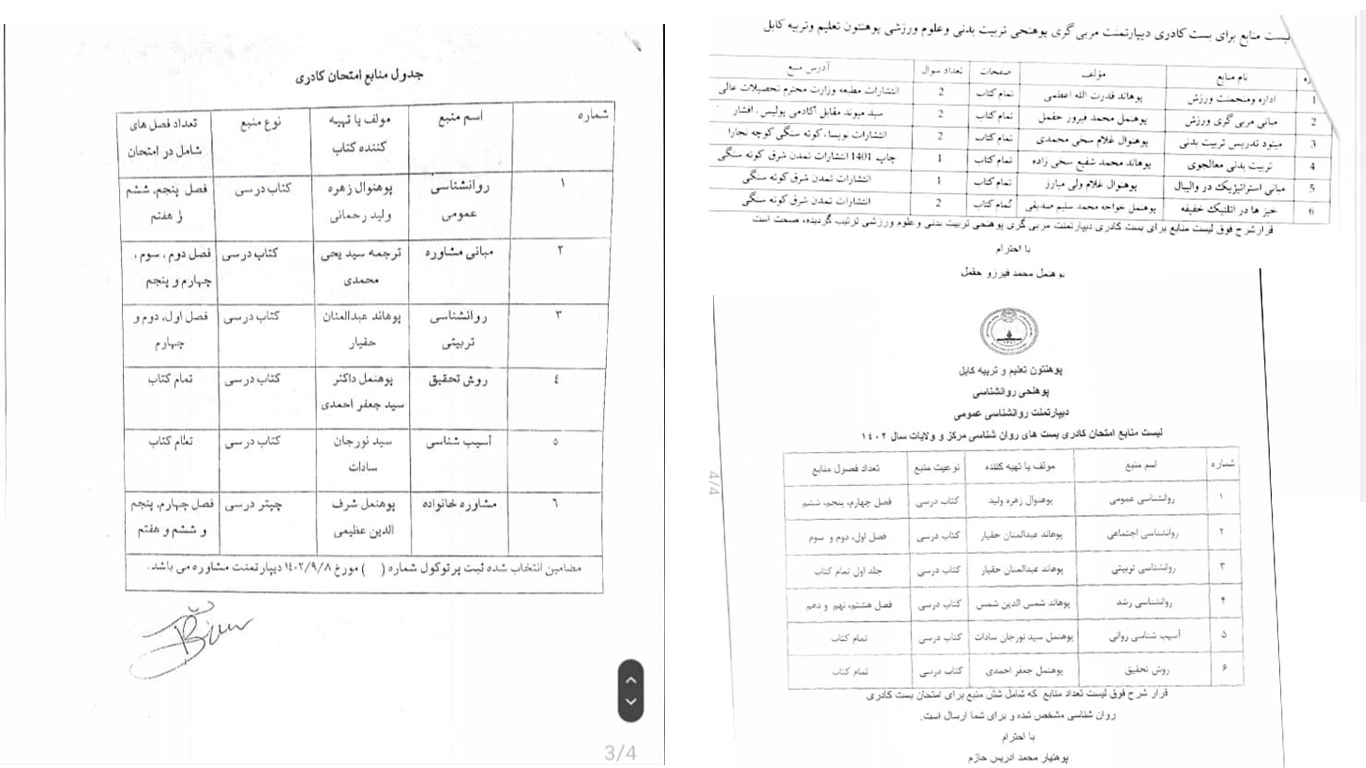 جدول منابع امتحان کادری
شماره | اسم منبع | مولف یا تهیه کننده کتاب | نوع منبع | تعداد فصل های شامل در امتحان
۱ | روانشناسی عمومی | پوهنوال زهره ولید رحمانی | کتاب درسی | فصل پنجم، ششم و هفتم
۲ | مبانی مشاوره | ترجمه سید یحی محمدی | کتاب درسی | فصل دوم ، سوم ، چهارم و پنجم
۳ | روانشناسی تربیتی | پوهاند عبدالمنان حقیار | کتاب درسی | فصل اول، دوم و چهارم
٤ | روش تحقیق | پوهنمل داکتر سید جعفر احمدی | کتاب درسی | تمام کتاب
٥ | آسیب شناسی | سید نورجان سادات | کتاب درسی | تمام کتاب
٦ | مشاوره خانواده | پوهنمل شرف الدین عظیمی | چپتر درسی | فصل چهارم، پنجم و ششم و هفتم
مضامین انتخاب شده ثبت پرتوکول شماره ( ) مورخ ۱٤۰۲/۹/۸ دیپارتمنت مشاوره می باشد.
3/4
لیست منابع برای بست کادری دیپارتمنت مربی گری پوهنحی تربیت بدنی وعلوم ورزشی پوهنتون تعلیم وتربیه کابل
ره | نام منابع | مؤلف | صفحات | تعداد سوال | آدرس منبع
1 | اداره ومنجمنت ورزش | پوهاند قدرت الله اعظمی | تمام کتاب | 2 | انتشارات مطبعه وزارت محترم تحصیلات عالی
2 | مبانی مربی گری ورزش | پوهنمل محمد فیروز حقمل | تمام کتاب | 2 | سید میوند مقابل اکادمی پولیس، افشار
3 | میتود تدریس تربیت بدنی | پوهنوال غلام سخی محمدی | تمام کتاب | 2 | انتشارات نویسا، کوته سنگی کوچه نجارا
4 | تربیت بدنی معالجوی | پوهاند محمد شفیع سخی زاده | تمام کتاب | 1 | چاپ 1401 انتشارات تمدن شرق کوته سنگی
5 | مبانی استراتیژیک در والیبال | پوهنوال غلام ولی مبارز | تمام کتاب | 1 | انتشارات تمدن شرق کوته سنگی
6 | خیز ها در اتلتیک خفیفه | پوهنمل خواجه محمد سلیم صدیقی | تمام کتاب | 2 | انتشارات تمدن شرق کوته سنگی
قرارشرح فوق لیست منابع برای بست کادری دیپارتمنت مربی گری پوهنحی تربیت بدنی وعلوم ورزشی ترتیب گردیده، صحت است
با احترام
پوهنمل محمد فیرزو حقمل
پوهنتون تعلیم و تربیه کابل
پوهنحی روانشناسی
دیپارتمنت روانشناسی عمومی
لیست منابع امتحان کادری بست های روان شناسی مرکز و ولایات سال ۱۴۰۲
شماره | اسم منبع | مولف یا تهیه کننده | نوعیت منبع | تعداد فصول منابع
۱ | روانشناسی عمومی | پوهنوال زهره ولید | کتاب درسی | فصل چهارم، پنجم، ششم
۲ | روانشناسی اجتماعی | پوهاند عبدالمنان حقیار | کتاب درسی | فصل اول، دوم و سوم
۳ | روانشناسی تربیتی | پوهاند عبدالمنان حقیار | کتاب درسی | جلد اول تمام کتاب
۴ | روانشناسی رشد | پوهاند شمس الدین شمس | کتاب درسی | فصل هشتم، نهم و دهم
۵ | آسیب شناسی روانی | پوهنمل سید نورجان سادات | کتاب درسی | تمام کتاب
۶ | روش تحقیق | پوهنمل جعفر احمدی | کتاب درسی | تمام کتاب
قرار شرح فوق لیست تعداد منابع که شامل شش منبع برای امتحان بست کادری
روان شناسی مشخص شده و برای شما ارسال است.
با احترام
پوهنیار محمد ادریس حازم
4/4